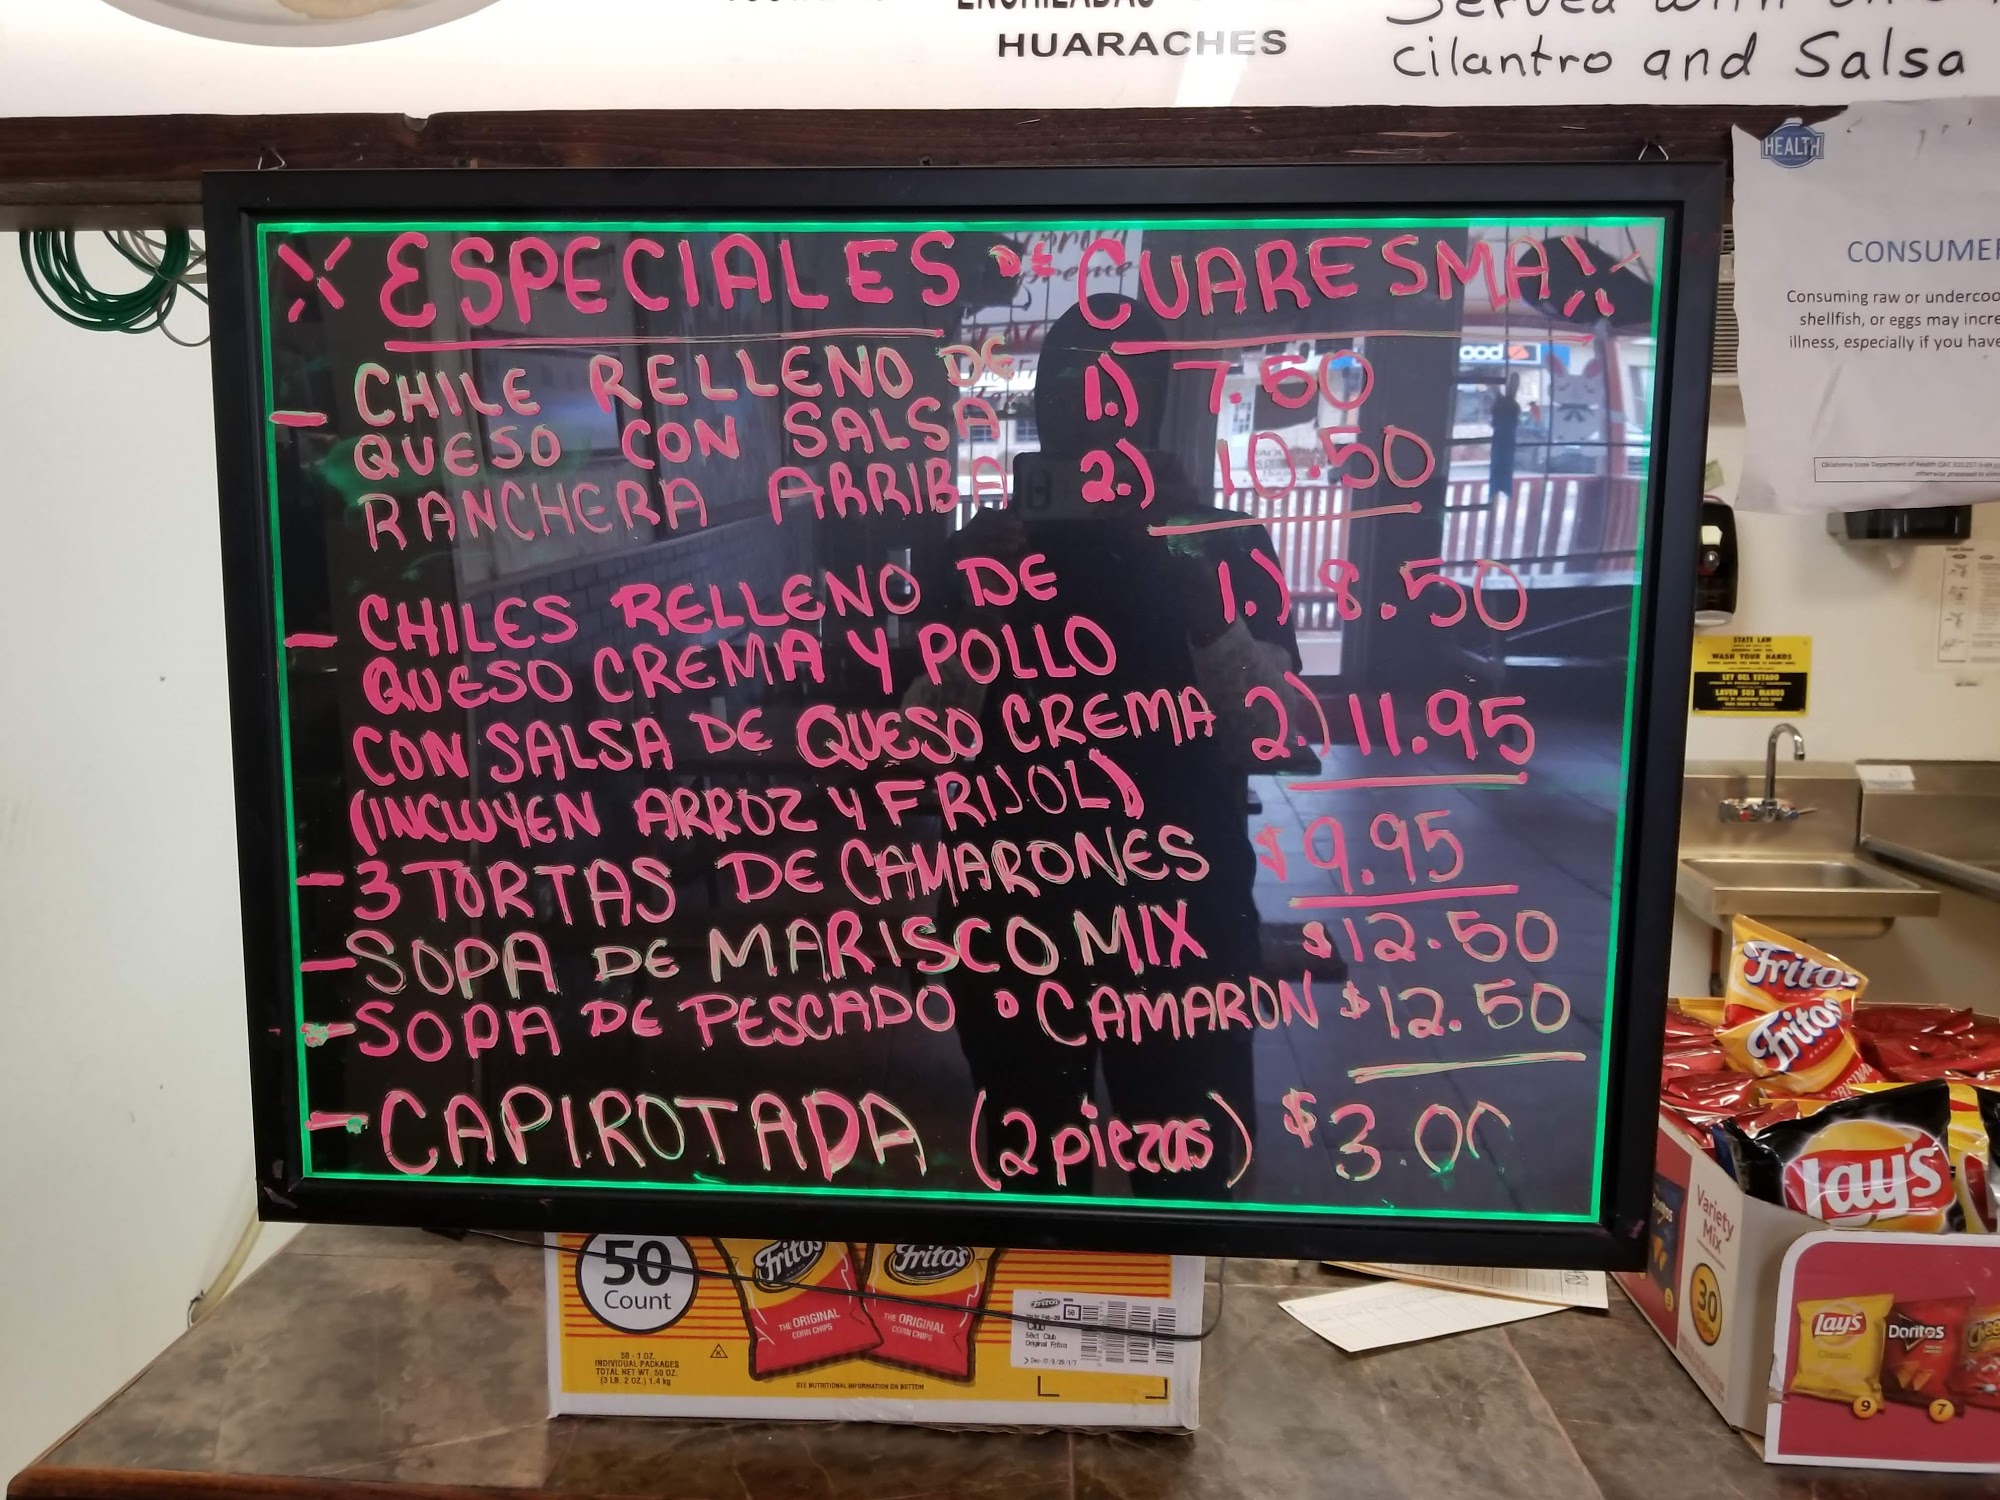 HUARACHES
cilantro and Salsa
HEALTH
ESPECIALES DE CUARESMA
- CHILE RELLENO DE 1.) 7.50
QUESO CON SALSA
RANCHERA ARRIBA 2.) 10.50
- CHILES RELLENO DE 1.) 8.50
QUESO CREMA Y POLLO
CON SALSA DE QUESO CREMA 2.) 11.95
(INCLUYEN ARROZ Y FRIJOL)
- 3 TORTAS DE CAMARONES $9.95
- SOPA DE MARISCO MIX $12.50
- SOPA DE PESCADO O CAMARON $12.50
- CAPIROTADA (2 piezas) $3.00
CONSUMER
Consuming raw or undercoo
shellfish, or eggs may incre
illness, especially if you have
STATE LAW
WASH YOUR HANDS
LEY DEL ESTADO
LAVEN SUS MANOS
Fritos
Fritos
Lay's
Variety
Mix
30
Lay's
Classic
Doritos
9
7
50
Count
Fritos
THE ORIGINAL
CORN CHIPS
Fritos
THE ORIGINAL
CORN CHIPS
50 - 1 OZ.
INDIVIDUAL PACKAGES
TOTAL NET WT. 50 OZ.
(3 LB. 2 OZ.) 1.4 kg
SEE NUTRITIONAL INFORMATION ON BOTTOM
50ct Club
Original Fritos